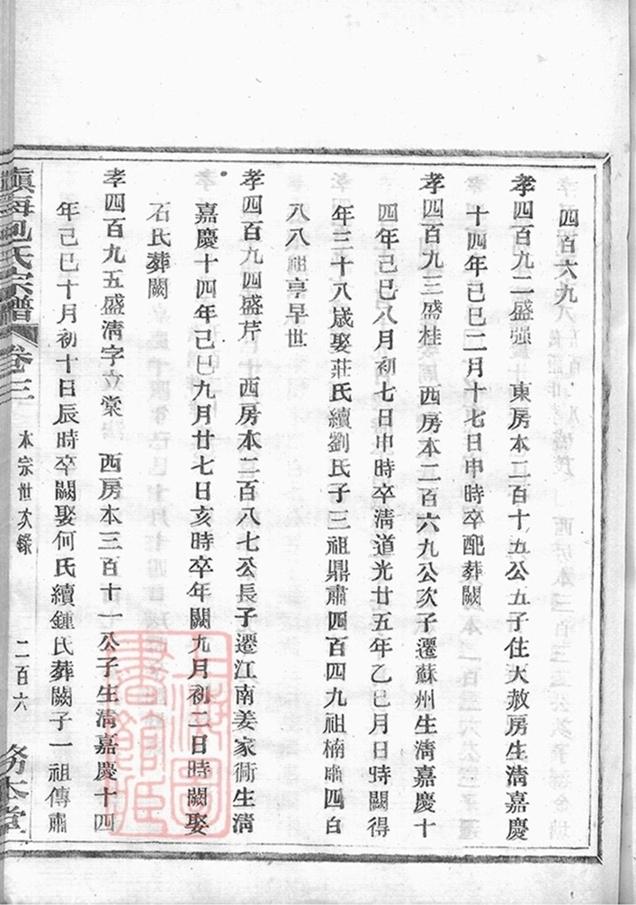 四百六九
孝四百九二盛强 東房本二百十五公五子住大赦房生淸嘉慶
十四年己巳二月十七日申時卒配葬闕
孝四百九三盛桂 西房本二百六九公次子遷蘇州生淸嘉慶十
四年己巳八月初七日申時卒淸道光廿五年乙巳月日時闕得
年三十八歲娶莊氏續劉氏子三祖鼎肅四百四九祖楠肅四百
八八祖亭早世
孝四百九四盛芹 西房本二百八七公長子遷江南姜家衖生淸
嘉慶十四年己巳九月廿七日亥時卒年闕九月初二日時闕娶
石氏葬闕
孝四百九五盛淸字立棠 西房本三百十一公子生淸嘉慶十四
年己巳十月初十日辰時卒闕娶何氏續鍾氏葬闕子一祖傳肅
鎭海包氏宗譜 卷三 本宗世次錄 二百六 務本堂
上海圖書館藏